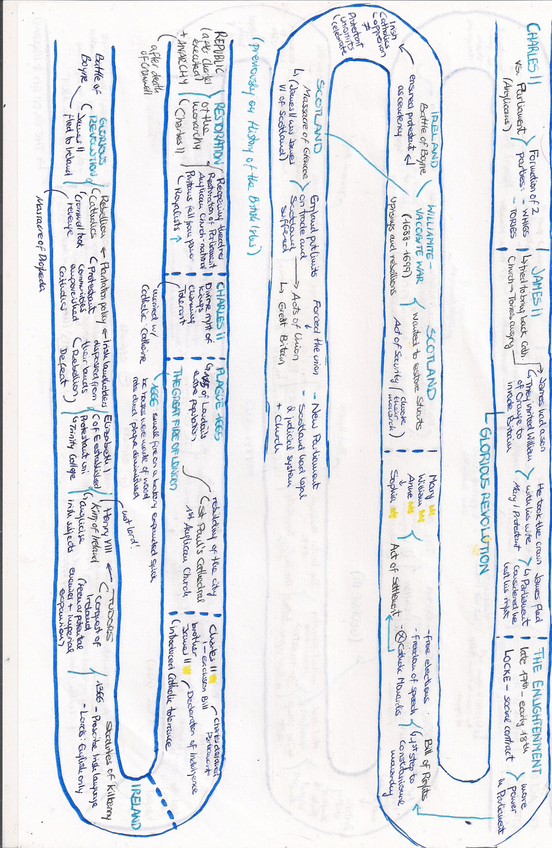 CHARLES II
vs. Parliament
(Anglicans)
Formation of 2
parties: - WHIGS
- TORIES
JAMES II
↳ tried to bring back Cath
Church - Tories angry
James had a son
They invited William
of Orange to
invade Britain
GLORIOUS REVOLUTION
He took the crown
with his wife
Mary / Protestant
James fled
↳ Parliament
considered he
lost his right
THE ENLIGHTENMENT
late 17th - early 18th
LOCKE - social contract
more
power
in Parliament
Bill of Rights
↳ 1st step to
Constitutional
monarchy
- free elections
- freedom of speech
- Catholic Monarchs
Act of Settlement
Mary
William
Anne
Sophia
SCOTLAND
wanted to restore Stuarts
Act of Security (choose
their
monarch)
WILLIAMITE -
JACOBITE WAR
(1688 - 1699)
Uprisings and rebellions
IRELAND
Battle of Boyne
ensured protestant
ascendency
Irish
Catholicism
oppression
≠
Protestant
unionists
celebrate
SCOTLAND
Massacre of Glencoe
↳ (James II was James
VI of Scotland)
England put limits
on trade and
Scotland
suffered
Forced the union
→ Acts of Union
↳ Great Britain
- New Parliament
- Scotland kept legal
& judicial system
+ Church
(previously on History of the British Isles)
REPUBLIC
(after Charles I
executed)
+ ANARCHY
after death
of Cromwell
RESTORATION
of the
monarchy
(Charles II
Reopening theatres
Restoration of Parliament
Anglican Church - national
Puritans fell from power
Royalists ↑
CHARLES II
Divine right of
Kings
charming
Tolerant
married w/
Catholic Catherine
PLAGUE 1665
↳ 1/5 of London's
whole population
THE GREAT FIRE OF LONDON
1666 small fire on a bakery expanded since
the houses were made of wood
rats died, plague diminished
rebuilding of the city
St Paul's Cathedral
1st Anglican Church
Charles II
! - exclusion Bill
brother
James II
Charles dissolved
Parliament
Declaration of Indulgence
(introduced Catholic tolerance
IRELAND
Statutes of Kilkenny
1366 - Proscribe Irish language
- Lords: English only
TUDORS
conquest of
Ireland
(feared potential
enemies + imperial
expansion)
Henry VIII
King of Ireland
not lord!
anglicise
Irish subjects
Elizabeth I
C of E established
Protestant uni
Trinity College
Irish landholders
disposed from
their lands
(Rebellion)
Defeat
Plantation policy
Protestant
communities
impoverished
Catholics
Rebellion
Catholics
Cromwell took
revenge
Massacre of Drogheda
GLORIOUS
REVOLUTION
James II
fled to Ireland
Battle of
Boyne